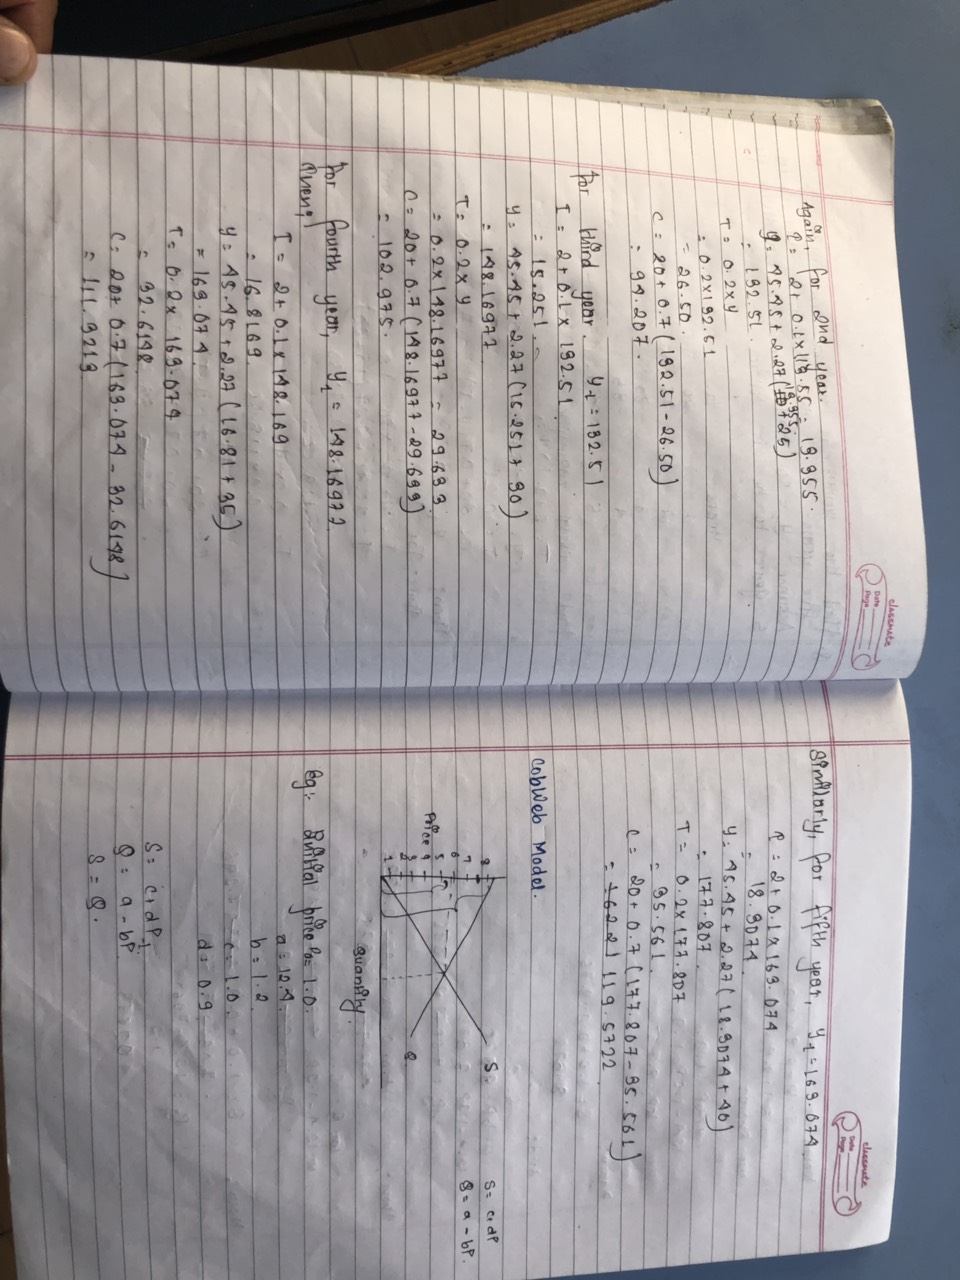 classmate
Date
Page
Again, for 2nd year.
I = 2 + 0.1 x 119.55 = 13.955.
13.955
y = 45.45 + 2.27 ( +25)
= 132.51.
T = 0.2 x y
= 0.2 x 132.51
= 26.50.
C = 20 + 0.7 (132.51 - 26.50)
= 94.207.
For third year. y-1 = 132.51
I = 2 + 0.1 x 132.51
= 15.251.
y = 45.45 + 2.27 (15.251 + 30)
= 148.16977
T = 0.2 x y
= 0.2 x 148.16977 = 29.633
C = 20 + 0.7 (148.16977 - 29.633)
= 102.975.
For fourth year, y-1 = 148.16977
Given,
I = 2 + 0.1 x 148.169
= 16.8169.
y = 45.45 + 2.27 (16.81 + 35)
= 163.074.
T = 0.2 x 163.074
= 32.6148.
C = 20 + 0.7 (163.074 - 32.6148)
= 111.3213
classmate
Date
Page
Similarly, for fifth year, y-1 = 163.074
I = 2 + 0.1 x 163.074
= 18.3074
y = 45.45 + 2.27 (18.3074 + 40)
= 177.807
T = 0.2 x 177.807
= 35.561.
C = 20 + 0.7 (177.807 - 35.561)
= 119.5722
CobWeb Model.
S = c+dP
Q = a - bP.
Price
8
7
6
5
4
3
2
1
S
Q
Quantity.
eg:- Initial price P0 = 1.0.
a = 12.4
b = 1.2
c = 1.0
d = 0.9
S = c+dP-1
Q = a - bP
S = Q.